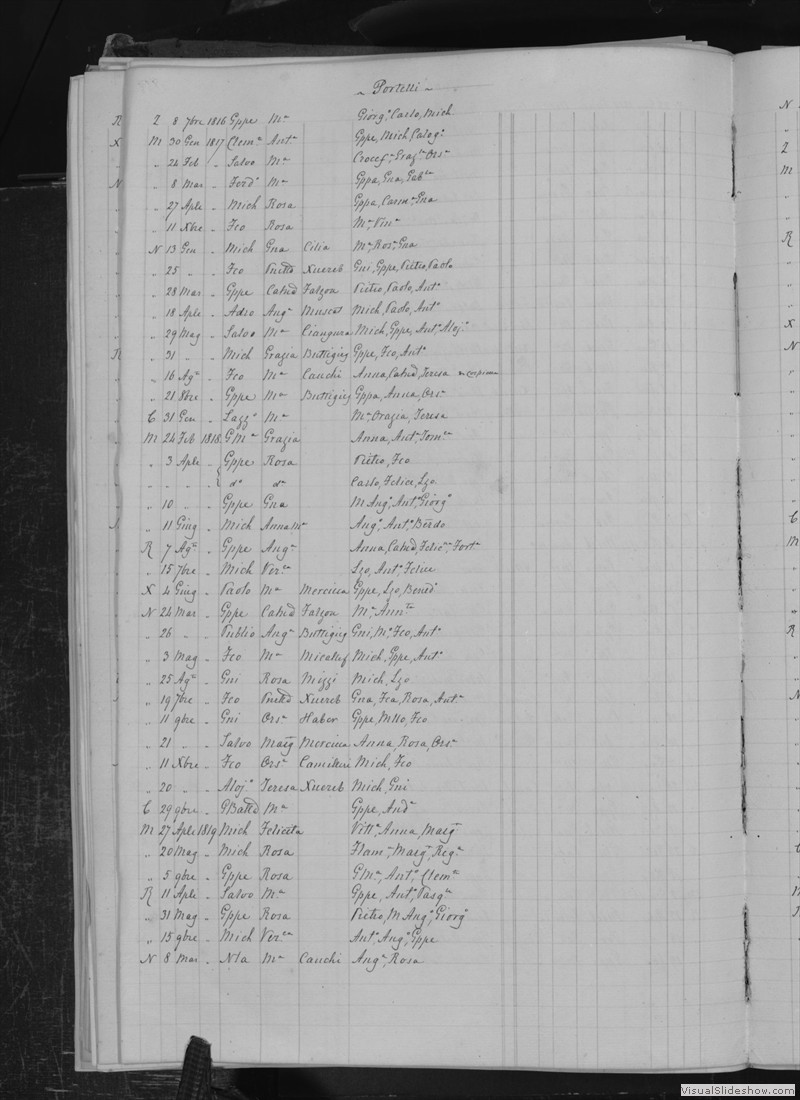 Portelli
R 2 8 7bre 1816 Gppe Ma Giorgo, Carlo, Mich
X M 30 Gen 1817 Clemte Anta Gppe, Mich, Calogo
„ 24 Feb „ Salvo Ma Crocefa, Graza, Orsa
N „ 8 Mar „ Ferdo Ma Gppa, Gna, Gabla
„ 27 Aple „ Mich Rosa Gppa, Carma, Gna
„ 11 Xbre „ Fco Rosa Ma, Vina
N 13 Gen „ Mich Gna Cilia Ma, Rosa, Gna
„ 25 „ „ Fco Xuereb Gni, Gppe, Pietro, Paolo
„ 28 Mar „ Gppe Catnd Falzon Pietro, Paolo, Anto
„ 18 Aple „ Adeo Anga Muscat Mich, Paolo, Anto
„ 29 Mag „ Salvo Ma Ciangura Mich, Gppe, Anto, Alojo
R „ 31 „ „ Mich Grazia Buttigieg Gppe, Fco, Anto
„ 16 Aga „ Fco Ma Cauchi Anna, Catnd, Teresa
„ 21 8bre „ Gppe Ma Buttigieg Gppa, Anna, Orsa
C 31 Gen „ Lazzo Ma Ma, Grazia, Teresa
M 24 Feb 1818 GMa Grazia Anna, Anta, Tomca
„ 3 Aple „ Gppe Rosa Pietro, Fco
„ „ „ „ do do Carlo, Felice, Lzo
„ 10 „ „ Gppe Gna M Ango, Anto, Giorgo
„ 11 Giug „ Mich Anna Ma Ango, Anto, Berdo
R 7 Aga „ Gppe Anga Anna, Catnd, Felica, Forta
„ 15 7bre „ Mich Verca Lzo, Anto, Felice
X 4 Giug „ Paolo Ma Mercieca Gppe, Lzo, Bened
N 24 Mar „ Gppe Catnd Falzon Ma, Annta
„ 26 „ „ Publio Anga Buttigieg Gni, Ma, Fco, Anto
„ 3 Mag „ Fco Ma Micallef Mich, Gppe, Anto
„ 25 Aga „ Gni Rosa Mizzi Mich, Lzo
„ 19 7bre „ Fco Xuereb Gna, Fca, Rosa, Anta
„ 11 9bre „ Gni Orsa Haber Gppe, Mllo, Fco
„ 21 „ „ Salvo Marg Mercieca Anna, Rosa, Orsa
„ 11 Xbre „ Fco Orsa Camilleri Mich, Fco
„ 20 „ „ Alojo Teresa Xuereb Mich, Gni
C 29 9bre „ GBatta Ma Gppe, Anda
M 27 Aple 1819 Mich Felicita Vitta, Anna, Marga
„ 20 Mag „ Mich Rosa Flama, Marga, Rega
„ 5 9bre „ Gppe Rosa GMa, Anto, Clemte
R 11 Aple „ Salvo Ma Gppe, Anto, Pasqe
„ 31 Mag „ Gppe Rosa Pietro, M Ango, Giorgo
„ 15 9bre „ Mich Verca Anto, Ango, Gppe
N 8 Mar „ Nla Ma Cauchi Anga, Rosa
VisualSlideshow.com